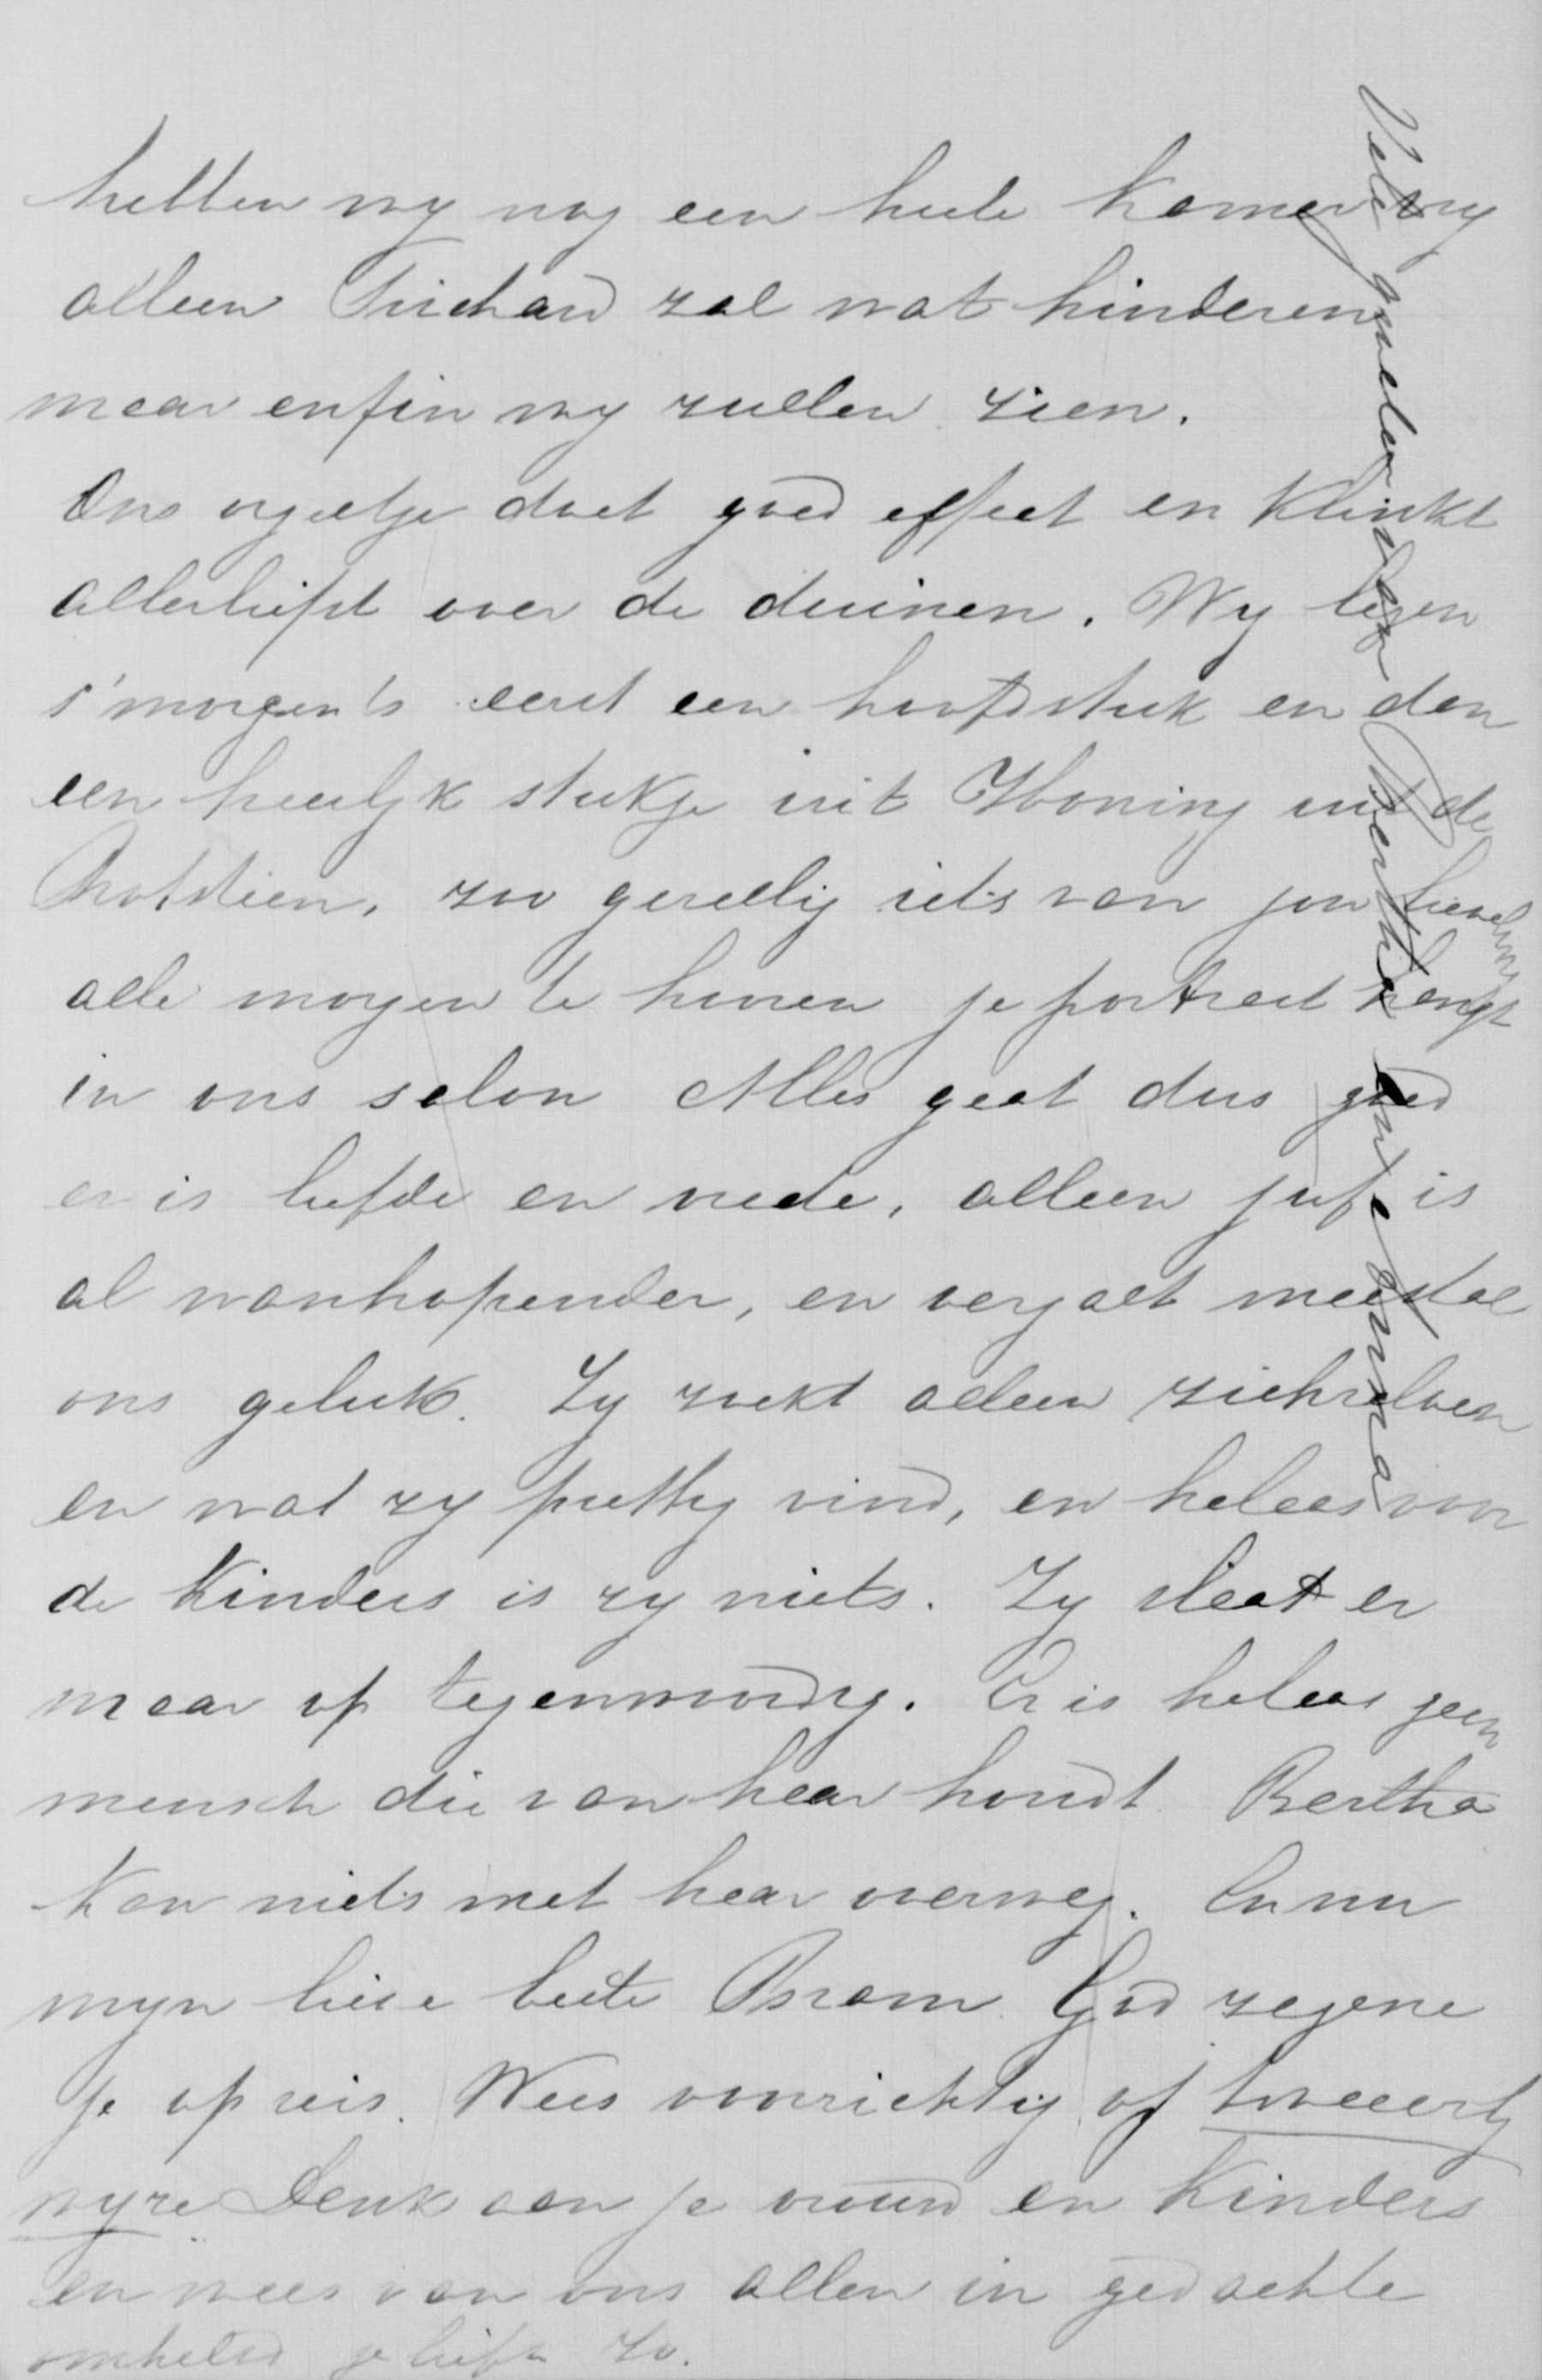 hebben wy nog een heele kamer vry
alleen Trichard zal wat hinderen
maar enfin wy zullen zien.
Ons orgeltje doet goed effect en klinkt
allerliefst over de duinen. Wy lezen
s'morgen's eerst een hoofdstuk en dan
een heerlyk stukje uit Honing uit de
Rotsteen, zoo gezellig iets van jou lieveling
alle morgen te hooren je portret hangt
in ons salon Alles gaat dus goed
er is liefde en vrede, alleen juf is
al wanhopender, en vergalt meestal
ons geluk. Zy zoekt alleen zichzelven
en wat zy prettig vind, en helaas voor
de kinders is zy niets. Zy slaat er
maar op tegenwoordig. Er is helaas geen
mensch die van haar houdt Bertha
kan niets met haar overweg. En nu
myn lieve beste Bram God zegene
je op reis. Wees voorzichtig op tweeerly
wyze Denk aan je vrouw en kinders
en wees van ons allen in gedachte
omhelsd je liefh Zo.
Vele groeten van Bertha en Emma